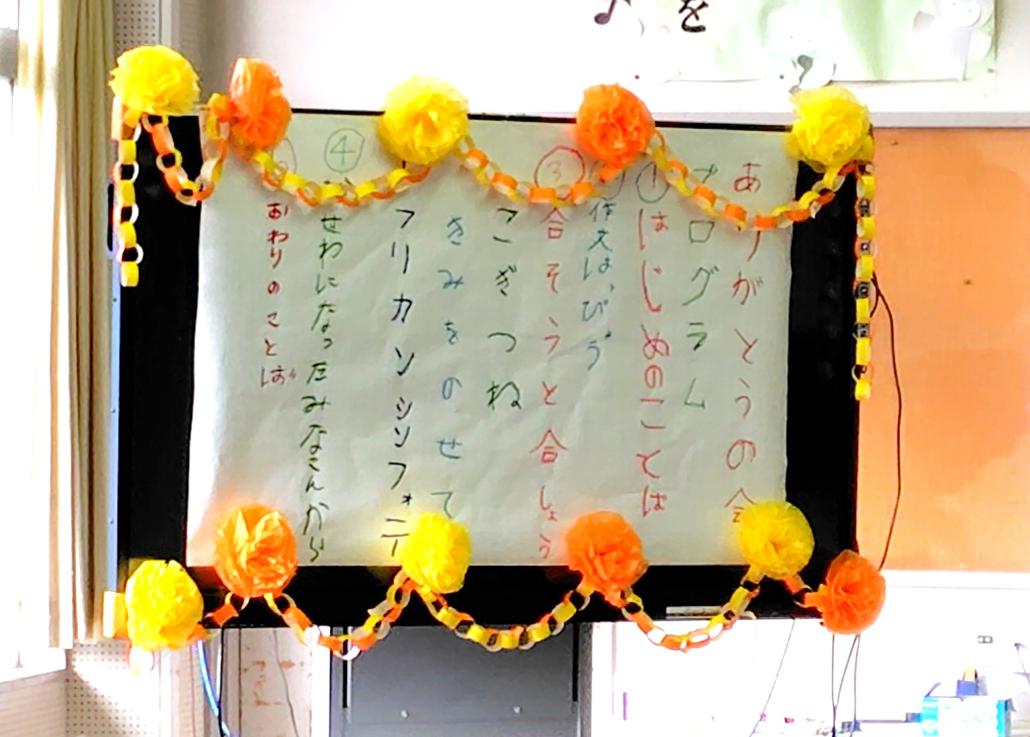 ♪を
ありがとうの会
プログラム
① はじめのことば
作文はっぴょう
③ 合そうと合しょう
こぎつね
きみをのせて
フリカンシンフォニー
④ せわになったみなさんから
おわりのことば